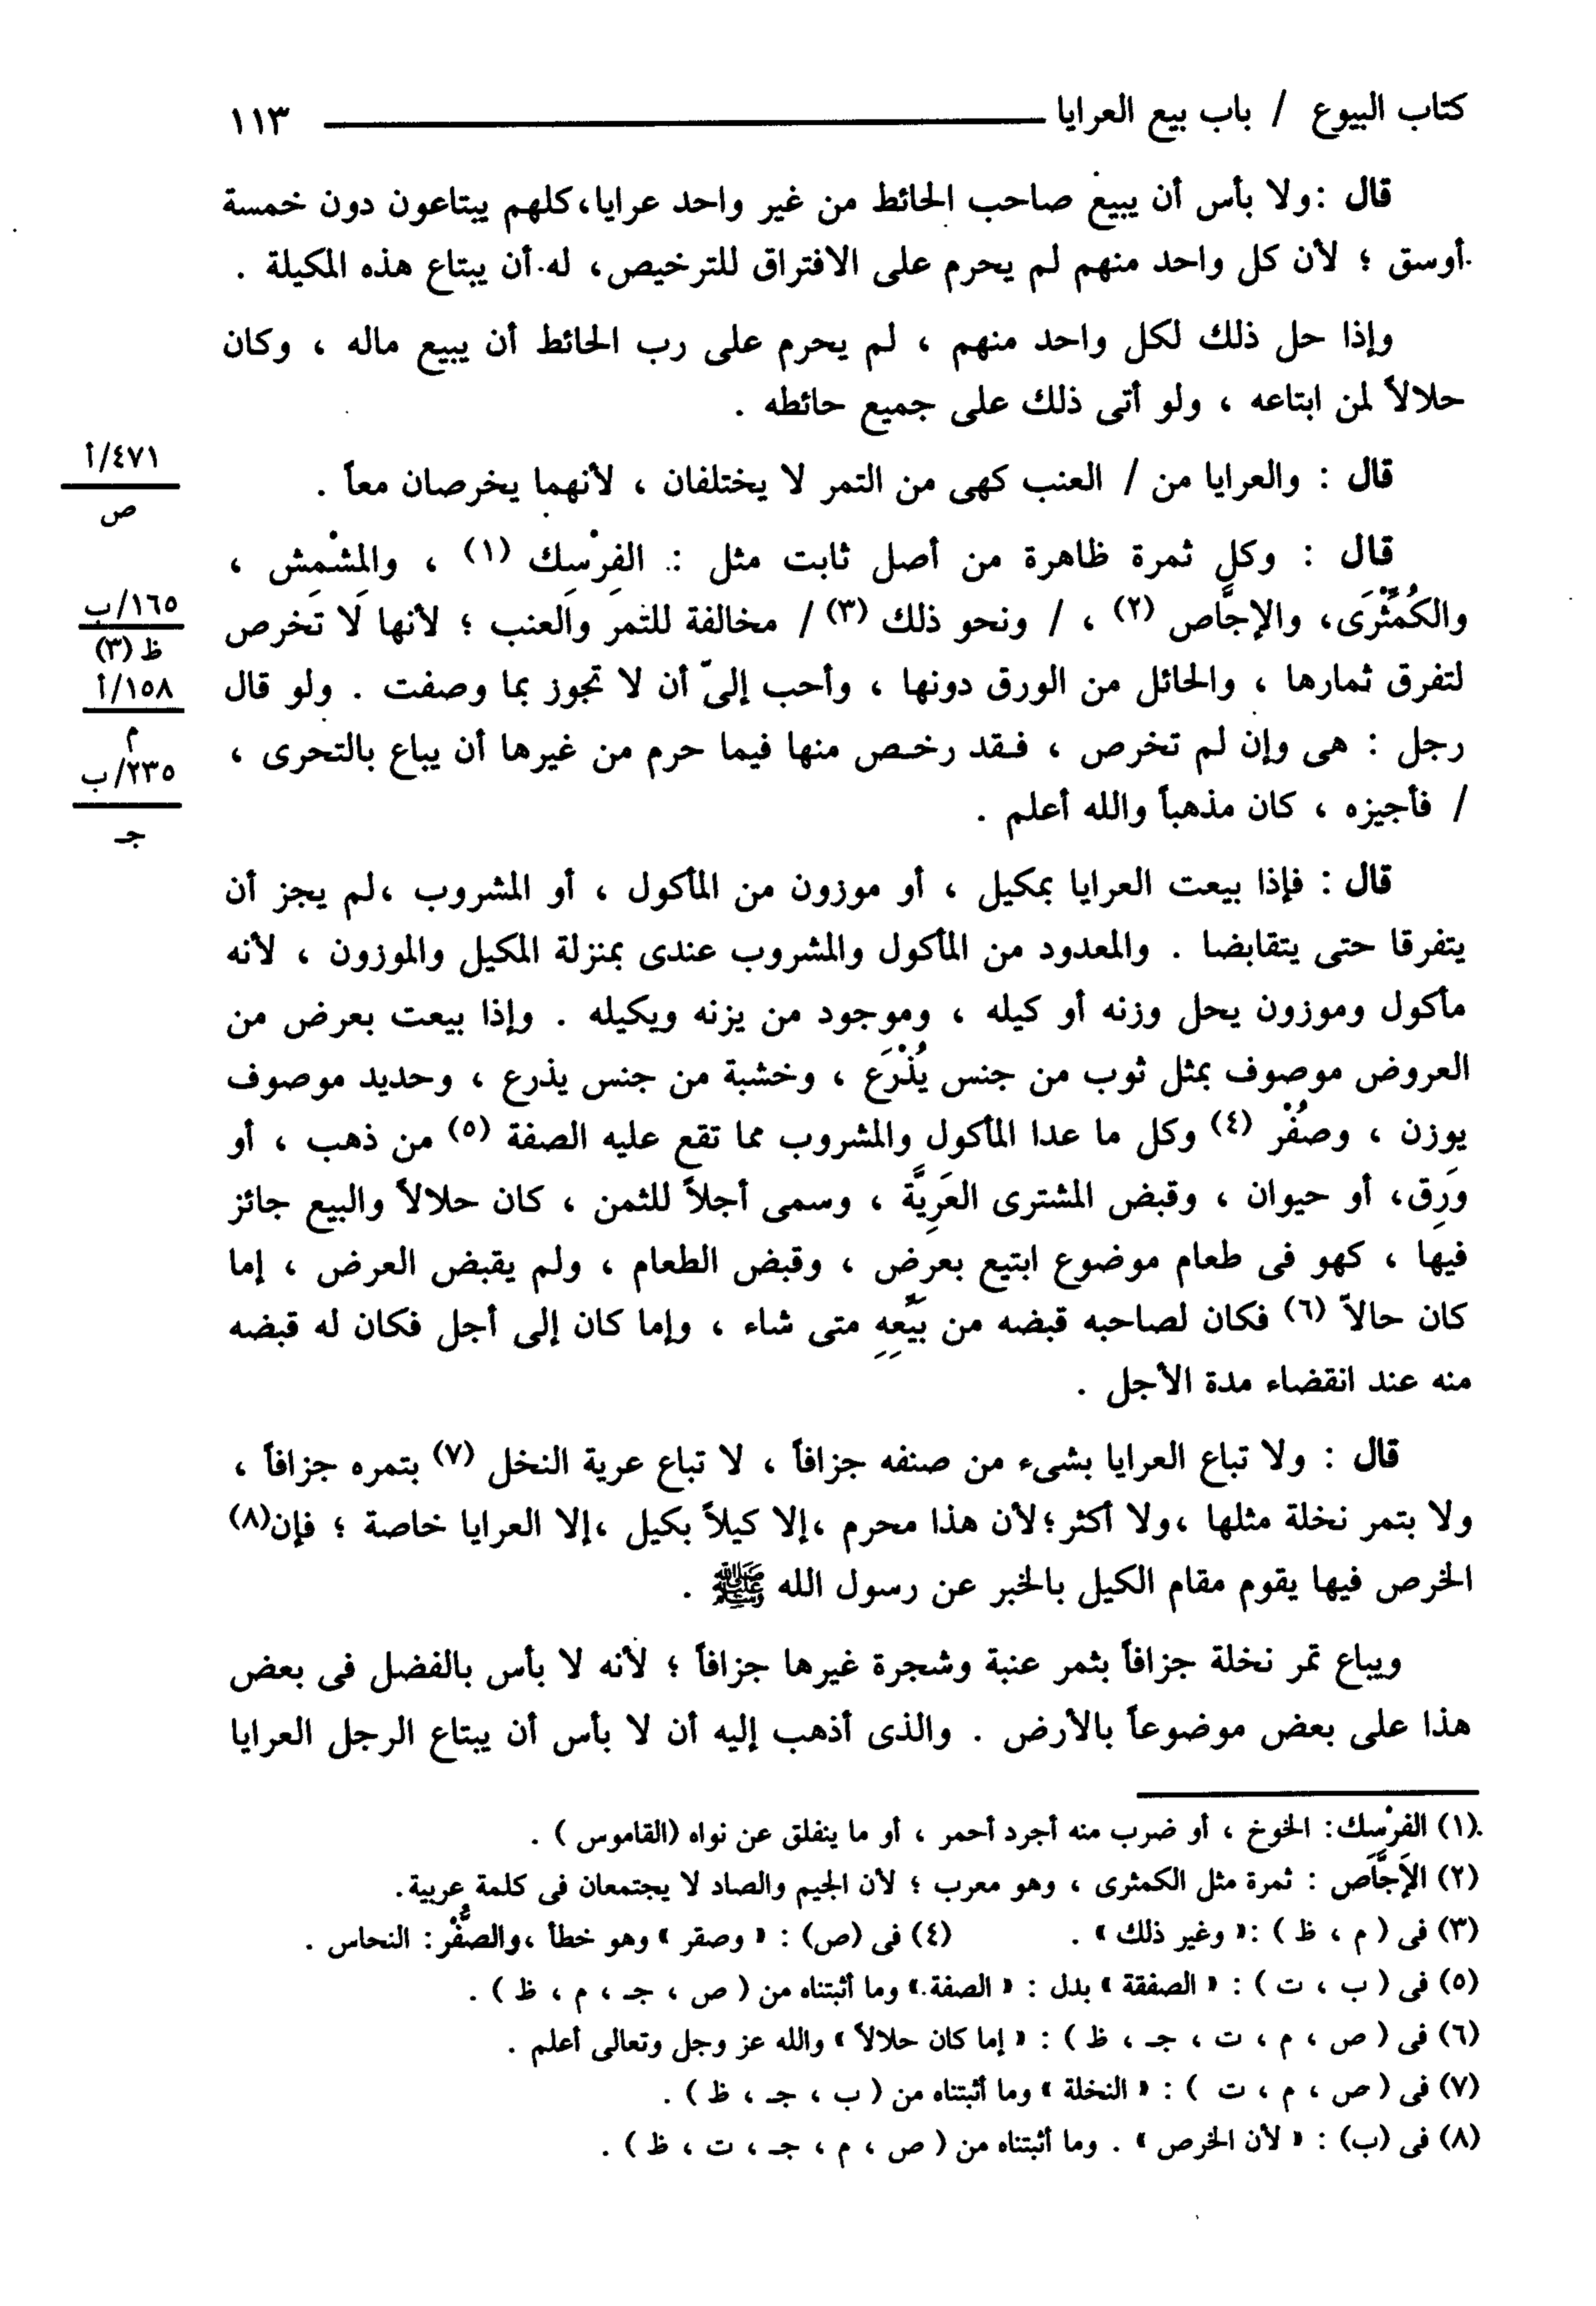 كتاب البيوع / باب بيع العرايا ١١٣
قال : ولا بأس أن يبيع صاحب الحائط من غير واحد عرايا، كلهم يبتاعون دون خمسة
أوسق ؛ لأن كل واحد منهم لم يحرم على الافتراق للترخيص، له أن يبتاع هذه المكيلة .
وإذا حل ذلك لكل واحد منهم ، لم يحرم على رب الحائط أن يبيع ماله ، وكان
حلالاً لمن ابتاعه ، ولو أتى ذلك على جميع حائطه .
قال : والعرايا من / العنب كهى من التمر لا يختلفان ، لأنهما يخرصان معاً .
٤٧١/أ
ص
قال : وكل ثمرة ظاهرة من أصل ثابت مثل : الفِرْسِك (١) ، والمِشْمِش ،
والكُمَّثْرَى، والإجَّاص (٢) ، / ونحو ذلك (٣) / مخالفة للتمر والعنب ؛ لأنها لا تخرص
١٦٥/ب
ظ (٣)
لتفرق ثمارها ، والحائل من الورق دونها ، وأحب إلىّ أن لا تجوز بما وصفت . ولو قال
١٥٨/أ
م
رجل : هى وإن لم تخرص ، فقد رخص منها فيما حرم من غيرها أن يباع بالتحرى ،
٢٣٥/ب
جـ
/ فأجيزه ، كان مذهباً والله أعلم .
قال : فإذا بيعت العرايا بمكيل ، أو موزون من المأكول ، أو المشروب ،لم يجز أن
يتفرقا حتى يتقابضا . والمعدود من المأكول والمشروب عندى بمنزلة المكيل والموزون ، لأنه
مأكول وموزون يحل وزنه أو كيله ، وموجود من يزنه ويكيله . وإذا بيعت بعرض من
العروض موصوف بمثل ثوب من جنس يُذْرَع ، وخشبة من جنس يذرع ، وحديد موصوف
يوزن ، وصُفْر (٤) وكل ما عدا المأكول والمشروب مما تقع عليه الصفة (٥) من ذهب ، أو
وَرِق، أو حيوان ، وقبض المشترى العَرِيَّة ، وسمى أجلاً للثمن ، كان حلالاً والبيع جائز
فيها ، كهو فى طعام موضوع ابتيع بعرض ، وقبض الطعام ، ولم يقبض العرض ، إما
كان حالاّ (٦) فكان لصاحبه قبضه من بَيِّعِهِ متى شاء ، وإما كان إلى أجل فكان له قبضه
منه عند انقضاء مدة الأجل .
قال : ولا تباع العرايا بشىء من صنفه جزافاً ، لا تباع عرية النخل (٧) بتمره جزافاً ،
ولا بتمر نخلة مثلها ،ولا أكثر؛لأن هذا محرم ،إلا كيلاً بكيل ،إلا العرايا خاصة ؛ فإن(٨)
الخرص فيها يقوم مقام الكيل بالخبر عن رسول الله ﷺ .
ويباع تمر نخلة جزافاً بثمر عنبة وشجرة غيرها جزافاً ؛ لأنه لا بأس بالفضل فى بعض
هذا على بعض موضوعاً بالأرض . والذى أذهب إليه أن لا بأس أن يبتاع الرجل العرايا
(١) الفِرْسِك: الخوخ ، أو ضرب منه أجرد أحمر ، أو ما ينفلق عن نواه (القاموس ) .
(٢) الإجَّاص : ثمرة مثل الكمثرى ، وهو معرب ؛ لأن الجيم والصاد لا يجتمعان فى كلمة عربية.
(٣) فى ( م ، ظ ) :« وغير ذلك » . (٤) فى (ص) : « وصقر » وهو خطأ ،والصُّفْر: النحاس .
(٥) فى ( ب ، ت ) : « الصفقة » بدل : « الصفة » وما أثبتناه من ( ص ، جـ ، م ، ظ ) .
(٦) فى ( ص ، م ، ت ، جـ ، ظ ) : « إما كان حلالاً » والله عز وجل وتعالى أعلم .
(٧) فى ( ص ، م ، ت ) : « النخلة » وما أثبتناه من ( ب ، جـ ، ظ ) .
(٨) فى (ب) : « لأن الخرص » . وما أثبتناه من ( ص ، م ، جـ ، ت ، ظ ) .